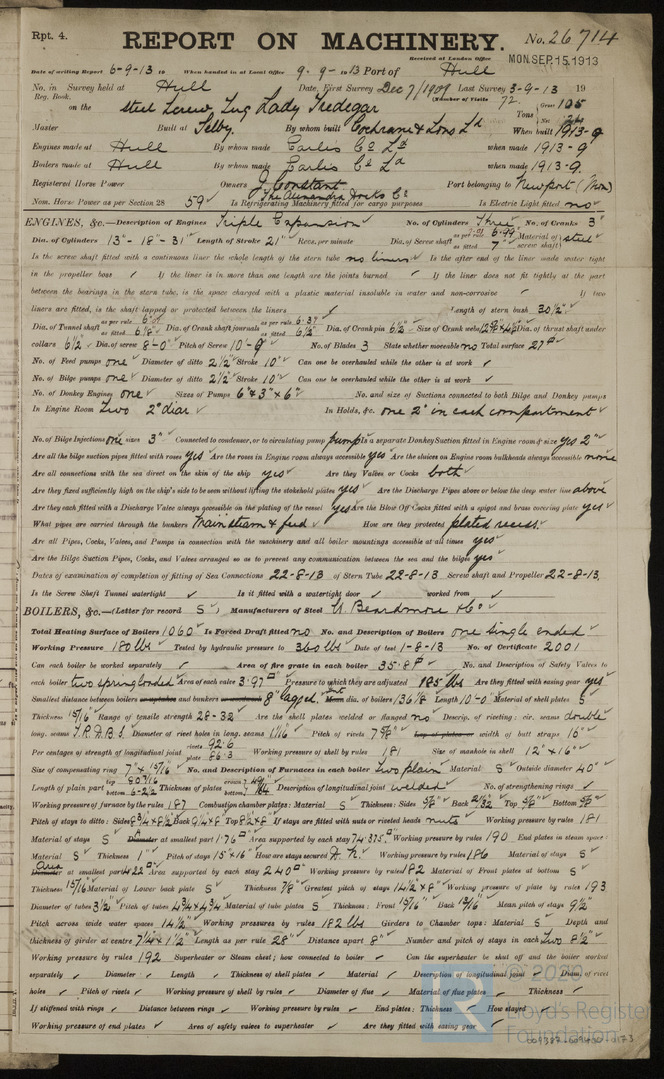 Rpt. 4.
REPORT ON MACHINERY.
No. 26714
Received at London Office
MON. SEP. 15. 1913
Date of writing Report 6-9-13 19 When handed in at Local Office 9-9-1913 Port of Hull
No. in Survey held at Hull Date, First Survey Dec 7/1909 Last Survey 3-9-13 19
Reg. Book. (Number of Visits 72.
on the steel Screw Tug Lady Tredegar Tons Gross 105
Master Built at Selby. By whom built Cochrane & Sons Ld When built 1913-9
Engines made at Hull By whom made Earles Co Ld when made 1913-9
Boilers made at Hull By whom made Earles Co Ld when made 1913-9
Registered Horse Power Owners J Constant Port belonging to Newport (Mon)
The Alexandra Docks Co
Nom. Horse Power as per Section 28 59 Is Refrigerating Machinery fitted for cargo purposes Is Electric Light fitted no
ENGINES, &c.—Description of Engines Triple Expansion No. of Cylinders Three No. of Cranks 3
Dia. of Cylinders 13"-18"-31" Length of Stroke 21" Revs. per minute Dia. of Screw shaft as per rule 6.99" as fitted 7" Material of screw shaft steel
Is the screw shaft fitted with a continuous liner the whole length of the stern tube no liners Is the after end of the liner made water tight
in the propeller boss If the liner is in more than one length are the joints burned If the liner does not fit tightly at the part
between the bearings in the stern tube, is the space charged with a plastic material insoluble in water and non-corrosive If two
liners are fitted, is the shaft lapped or protected between the liners Length of stern bush 30½"
Dia. of Tunnel shaft as per rule as fitted 6⅛" Dia. of Crank shaft journals as per rule 6.37 as fitted 6½" Dia. of Crank pin 6½" Size of Crank webs Dia. of thrust shaft under
collars 6½" Dia. of screw 8-0" Pitch of Screw 10-9" No. of Blades 3 State whether moveable no Total surface 27
No. of Feed pumps one Diameter of ditto 2½" Stroke 10" Can one be overhauled while the other is at work
No. of Bilge pumps one Diameter of ditto 2½" Stroke 10" Can one be overhauled while the other is at work
No. of Donkey Engines one Sizes of Pumps 6" & 3" x 6" No. and size of Suctions connected to both Bilge and Donkey pumps
In Engine Room Two 2" diar In Holds, &c. one 2" in each compartment
No. of Bilge Injections one sizes 3" Connected to condenser, or to circulating pump pump Is a separate Donkey Suction fitted in Engine room & size yes 2"
Are all the bilge suction pipes fitted with roses yes Are the roses in Engine room always accessible yes Are the sluices on Engine room bulkheads always accessible none
Are all connections with the sea direct on the skin of the ship yes Are they Valves or Cocks both
Are they fixed sufficiently high on the ship's side to be seen without lifting the stokehold plates yes Are the Discharge Pipes above or below the deep water line above
Are they each fitted with a Discharge Valve always accessible on the plating of the vessel yes Are the Blow Off Cocks fitted with a spigot and brass covering plate yes
What pipes are carried through the bunkers Main steam & feed How are they protected plated recess.
Are all Pipes, Cocks, Valves, and Pumps in connection with the machinery and all boiler mountings accessible at all times yes
Are the Bilge Suction Pipes, Cocks, and Valves arranged so as to prevent any communication between the sea and the bilges yes
Dates of examination of completion of fitting of Sea Connections 22-8-13 of Stern Tube 22-8-13 Screw shaft and Propeller 22-8-13.
Is the Screw Shaft Tunnel watertight Is it fitted with a watertight door worked from
BOILERS, &c.—(Letter for record S) Manufacturers of Steel W. Beardmore & Co
Total Heating Surface of Boilers 1060 Is Forced Draft fitted no No. and Description of Boilers one single ended
Working Pressure 180 lbs Tested by hydraulic pressure to 360 lbs Date of test 1-8-13 No. of Certificate 2001
Can each boiler be worked separately Area of fire grate in each boiler 35.8 No. and Description of Safety Valves to
each boiler two spring loaded Area of each valve 3.97 Pressure to which they are adjusted 185 lbs Are they fitted with easing gear yes
Smallest distance between boilers or uptakes and bunkers or woodwork 8" lagged. dia. of boilers 136⅛ Length 10-0" Material of shell plates S
Thickness 15/16" Range of tensile strength 28-32 Are the shell plates welded or flanged no Descrip. of riveting: cir. seams double
long. seams T.R.D.B.S. Diameter of rivet holes in long. seams 1 1/16" Pitch of rivets 7⅝" Lap of plates or width of butt straps 16"
Per centages of strength of longitudinal joint rivets 92.6 plate 86.3 Working pressure of shell by rules 181 Size of manhole in shell 12" x 16"
Size of compensating ring 7" x 15/16" No. and Description of Furnaces in each boiler Two plain Material S Outside diameter 40"
Length of plain part top 80 7/16 bottom 6-2½ Thickness of plates crown bottom Description of longitudinal joint welded No. of strengthening rings
Working pressure of furnace by the rules 187 Combustion chamber plates: Material S Thickness: Sides Back 21/32 Top Bottom
Pitch of stays to ditto: Sides 8¾ x 8½ Back 9¼ x 8 Top 8½ x 8 If stays are fitted with nuts or riveted heads nuts Working pressure by rules 181
Material of stays S Diameter at smallest part 1.76 Area supported by each stay 74.375 Working pressure by rules 190 End plates in steam space:
Material S Thickness 1" Pitch of stays 15 x 16" How are stays secured D. N. Working pressure by rules 186 Material of stays S
Area at smallest part Area supported by each stay 240 Working pressure by rules 182 Material of Front plates at bottom S
Thickness 15/16 Material of Lower back plate S Thickness ⅞" Greatest pitch of stays 14½ x 8" Working pressure of plate by rules 193
Diameter of tubes 3½" Pitch of tubes 4¾ x 4¾ Material of tube plates S Thickness: Front 15/16" Back 13/16" Mean pitch of stays 9½"
Pitch across wide water spaces 14½" Working pressures by rules 182 lbs Girders to Chamber tops: Material S Depth and
thickness of girder at centre 7¼ x 1½" Length as per rule 28" Distance apart 8" Number and pitch of stays in each Two 8½"
Working pressure by rules 192 Superheater or Steam chest; how connected to boiler Can the superheater be shut off and the boiler worked
separately Diameter Length Thickness of shell plates Material Description of longitudinal joint Diam. of rivet
holes Pitch of rivets Working pressure of shell by rules Diameter of flue Material of flue plates Thickness
If stiffened with rings Distance between rings Working pressure by rules End plates: Thickness How stayed
Working pressure of end plates Area of safety valves to superheater Are they fitted with easing gear
© 2020
Lloyd's Register
Foundation